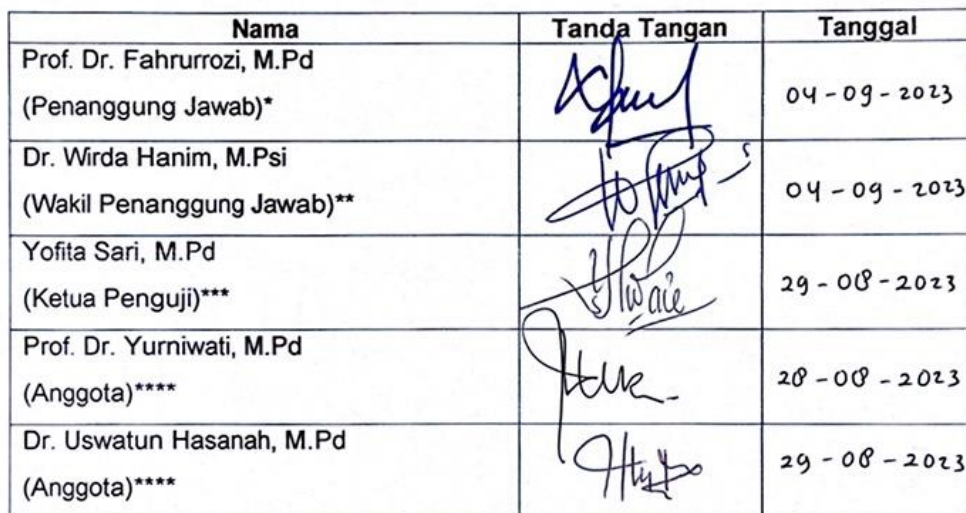 Nama Tanda Tangan Tanggal
Prof. Dr. Fahrurrozi, M.Pd
(Penanggung Jawab)* 04-09-2023
Dr. Wirda Hanim, M.Psi
(Wakil Penanggung Jawab)** 04-09-2023
Yofita Sari, M.Pd
(Ketua Penguji)*** 29-08-2023
Prof. Dr. Yurniwati, M.Pd
(Anggota)**** 28-08-2023
Dr. Uswatun Hasanah, M.Pd
(Anggota)**** 29-08-2023